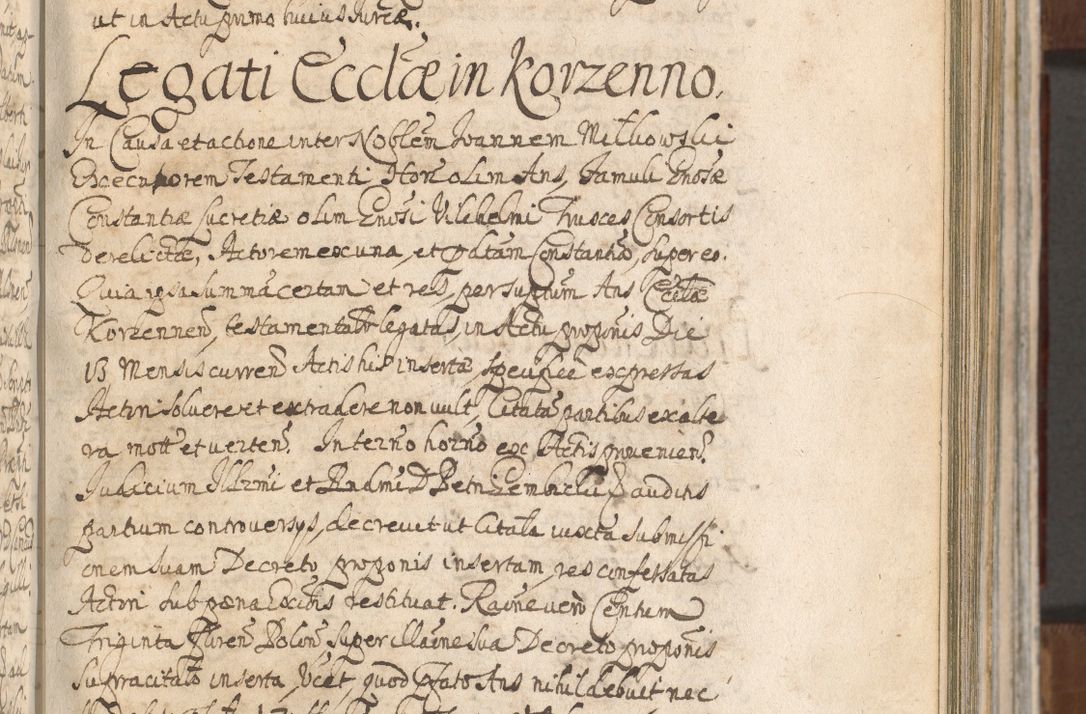 ut in Actu primo huius Iurcæ.
Legati Ecclæ in Korzenno.
In Causa et actione inter Noblem Ioannem Mitkowski
Executorem Testamenti Hon olim Ans, Famuli Gnosæ
Constantiæ Lucretiæ olim Gnosi Vilhelmi Consortis
derelictæ, Actorem ex una, et Citatam Constantiã, super eo.
Quia ipsa summã certam et res, per Ans Ecclæ
Korzennen, testamentalr legatas, in Actu propoñis Die
13 Mensis curren Actis his insertæ specifice expressas
Actori solvere et extradere non vult, Citata partibus ex alte
ra mott et verten. In termo horno ex Actis provenien.
Judicium Illrmi et Rndmi D Petri Gembicki auditis
partium controversys, decrevit ut Citata iuxta submissi
onem suam Decreto proponis insertam, res confessatas
Actori sub pæna Excõis restituat. Raõne vero Centum
Triginta Fluren Polon super illaõne sua Decreto propoñis
supracitato inserta, Vcet quod Pfato Ans nihil debuit nec